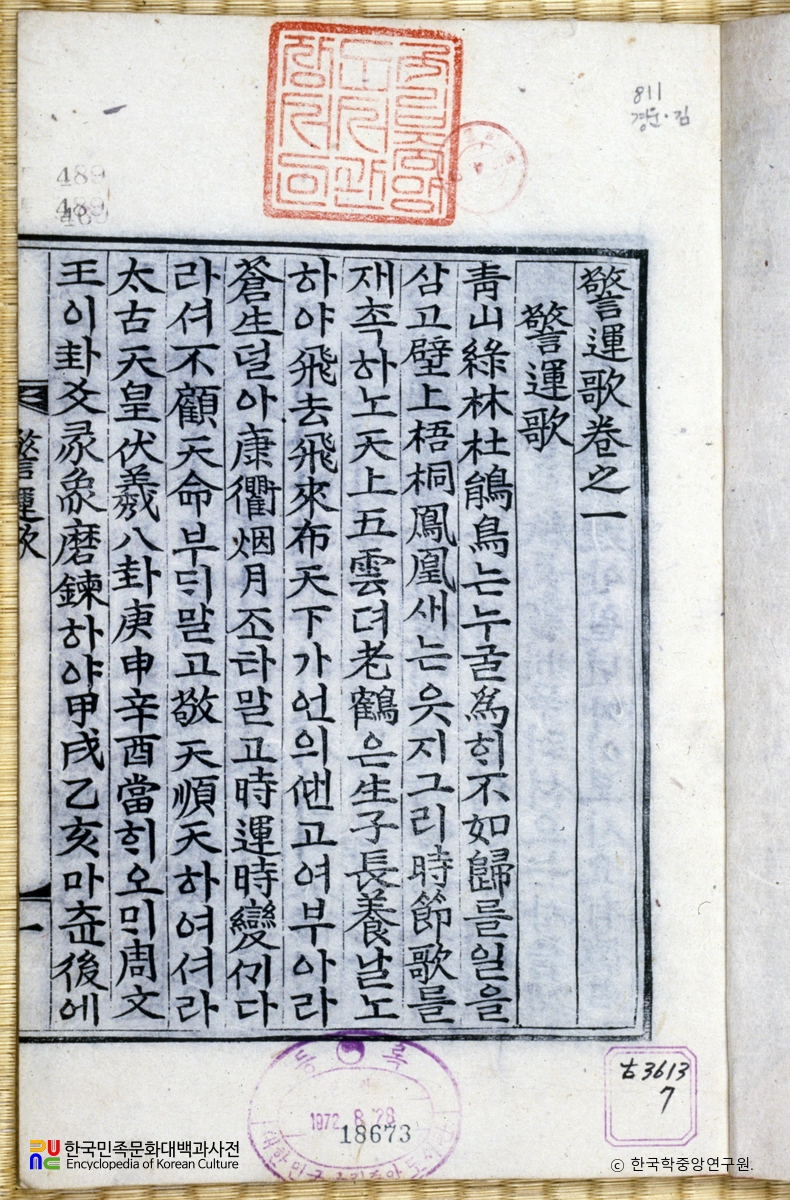 811
경운·김
489
489
警運歌卷之一
警運歌
靑山綠林杜鵑鳥는누굴爲ᄒᆡ不如歸를일을
삼고壁上梧桐鳳凰새는웃지그리時節歌를
재촉하노天上五雲뎌老鶴은生子長養날노
하야飛去飛來布天下가언의ᄯᅢᆫ고여부아라
蒼生덜아康衢烟月조타말고時運時變기다
라셔不顧天命부ᄃᆡ말고敬天順天하여셔라
太古天皇伏羲八卦庚申辛酉當ᄒᆡ오ᄆᆡ周文
王이卦爻彖象磨鍊하야甲戌乙亥마츈後에
警運歌
一
등록
1972. 8. 28
18673
古3613
7
한국민족문화대백과사전
Encyclopedia of Korean Culture
ⓒ 한국학중앙연구원.